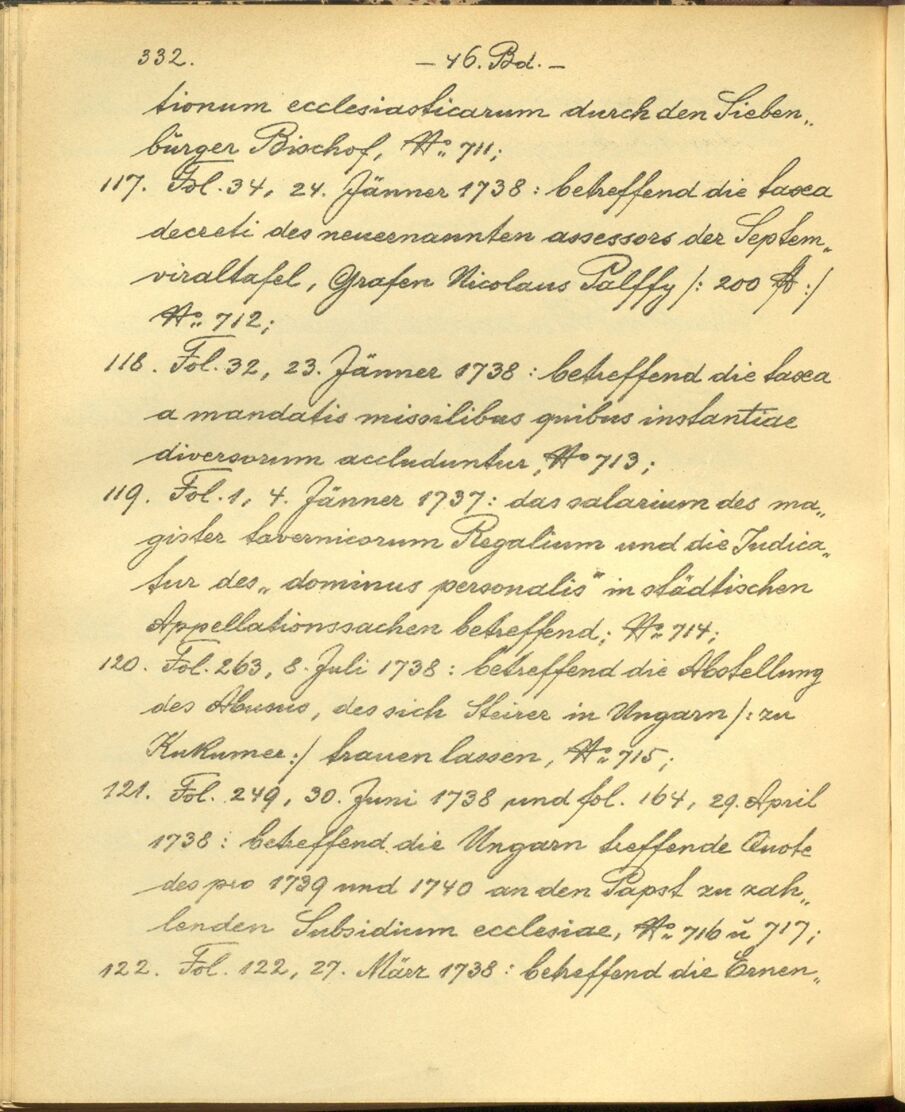 332. – 46. Bd. –
tionum ecclesiasticarum durch den Sieben„
bürger Bischof, No. 711;
117. Fol. 34, 24. Jänner 1738: betreffend die taxa
decreti des neuernannten assessors der Septem„
viraltafel, Grafen Nicolaus Palffy /: 200 fl :/
No. 712;
118. Fol. 32, 23. Jänner 1738: betreffend die taxa
a mandatis missilibus quibus instantiae
diversorum accluduntur, No 713;
119. Fol. 1, 4. Jänner 1737: das salarium des ma„
gister tavernicorum Regalium und die Judica„
tur des „dominus personalis“ in städtischen
Appellationssachen betreffend; No. 714;
120. Fol. 263, 8. Juli 1738: betreffend die Abstellung
des Abusus, des sich Steirer in Ungarn /: zu
Kukumer :/ trauen lassen, No. 715;
121. Fol. 249, 30. Juni 1738 und fol. 164, 29. April
1738: betreffend die Ungarn treffende Quote
des pro 1739 und 1740 an den Papst zu zah„
lenden Subsidium ecclesiae, No. 716 ŭ 717;
122. Fol. 122, 27. März 1738: betreffend die Ernen„